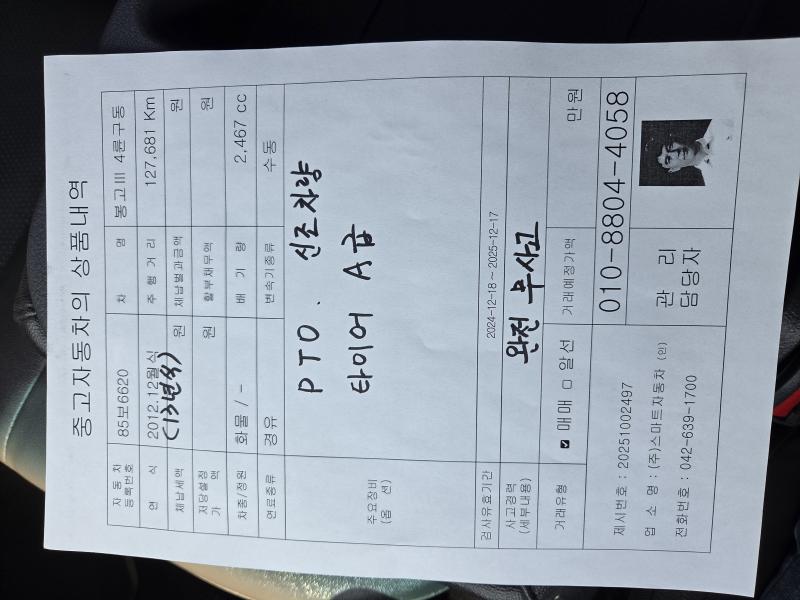 중고자동차의 상품내역
자동차등록번호 85보6620 차 명 봉고Ⅲ 4륜구동
연 식 2012.12월식 (13년식) 주 행 거 리 127,681 Km
체납세액 원 체납벌과금액 원
저당설정가 액 원 할부채무액 원
차종/정원 화물 / - 배 기 량 2,467 cc
연료종류 경유 변속기종류 수동
주요장비
(옵 션)
PTO. 신조차량
타이어 A급
검사유효기간 2024-12-18 ~ 2025-12-17
사고경력
(세부내용)
완전 무사고
거래유형 ☑ 매매 □ 알선 거래예정가액 만원
제시번호 : 20251002497
업 소 명 : (주)스마트자동차 (인)
전화번호 : 042-639-1700
010-8804-4058
관 리
담당자